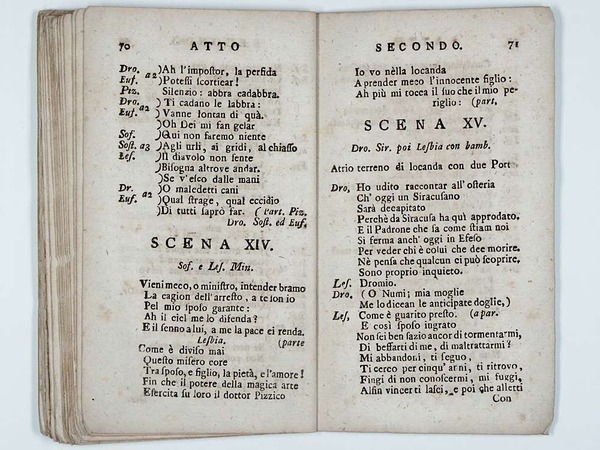 70 ATTO
Dro. a2 )Ah l'impostor, la perfida
Euf. )Potessi scorticar!
Piz. Silenzio: abbra cadabbra.
Dro. a2 ) Ti cadano le labbra:
Euf. ) Vanne lontan di quà.
)Oh Dei mi fan gelar
Sof. )Qui non faremo niente
Sost. a3 )Agli urli, ai gridi, al chiasso
Les. )Il diavolo non sente
)Bisogna altrove andar.
)Se v'esco dalle mani
Dr. a2 )O maledetti cani
Euf. )Qual strage, qual eccidio
)Di tutti saprò far. ( Part. Piz.
Dro. Sost. ed Euf.
SCENA XIV.
Sof. e Les. Min.
Vieni meco, o ministro, intender bramo
La cagion dell'arresto, a te son io
Pel mio sposo garante:
Ah il ciel me lo difenda?
E il senno a lui, a me la pace ei renda.
Lesbia. (parte
Come è diviso mai
Questo misero core
Tra sposo, e figlio, la pietà, e l'amore!
Fin che il potere della magica arte
Esercita su loro il dottor Pizzico
SECONDO. 71
Io vo nèlla locanda
A prender meco l'innocente figlio:
Ah più mi tocca il suo che il mio pe-
riglio: (part.
SCENA XV.
Dro. Sir. poi Lesbia con bamb.
Atrio terreno di locanda con due Port
Dro, Ho udito raccontar all'osteria
Ch' oggi un Siracusano
Sarà decapitato
Perchè da Siracusa ha quì approdato.
E il Padrone che sa come stiam noi
Si ferma anch' oggi in Efeso
Per veder chi è colui che dee morire.
Nè pensa che qualcun ci può scoprire.
Sono proprio inquieto.
Les. Dromio.
Dro. ( O Numi; mia moglie
Me lo dicean le anticipate doglie,)
Les, Come è guarito presto. (a par.
E così sposo ingrato
Non sei ben sazio ancor di tormentarmi,
Di beffarti di me, di maltrattarmi?
Mi abbandoni, ti seguo,
Ti cerco per cinqu' anni, ti ritrovo,
Fingi di non conoscermi, mi fuggi,
Alfin vincer ti lasci, e poi che alletti
Con